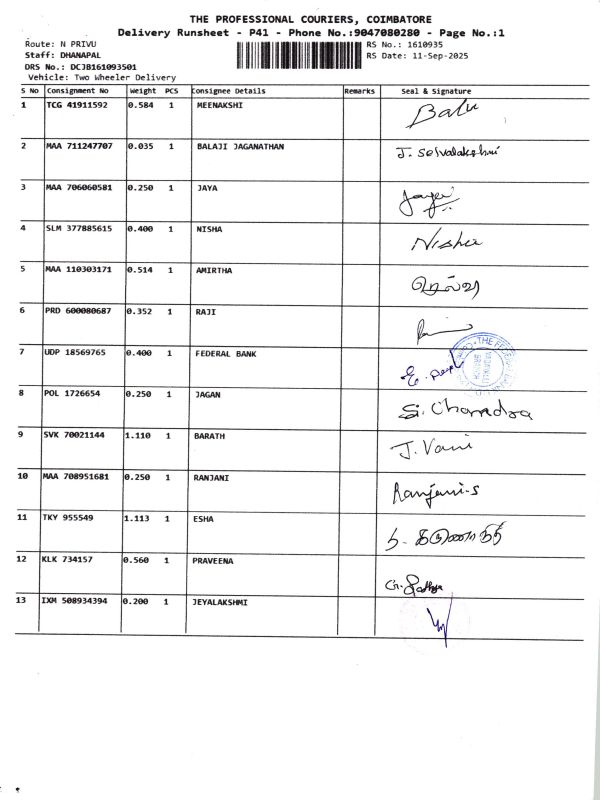 THE PROFESSIONAL COURIERS, COIMBATORE
Delivery Runsheet - P41 - Phone No.:9047080280 - Page No.:1
Route: N PRIVU RS No.: 1610935
Staff: DHANAPAL RS Date: 11-Sep-2025
DRS No.: DCJB161093501
Vehicle: Two Wheeler Delivery
S No Consignment No Weight PCS Consignee Details Remarks Seal & Signature
1 TCG 41911592 0.584 1 MEENAKSHI Balu
2 MAA 711247707 0.035 1 BALAJI JAGANATHAN J. Selvalakshmi
3 MAA 706060581 0.250 1 JAYA
4 SLM 377885615 0.400 1 NISHA Nisha
5 MAA 110303171 0.514 1 AMIRTHA
6 PRD 600080687 0.352 1 RAJI
7 UDP 18569765 0.400 1 FEDERAL BANK
8 POL 1726654 0.250 1 JAGAN S. Chandra
9 SVK 70021144 1.110 1 BARATH J. Vani
10 MAA 708951681 0.250 1 RANJANI Ranjani-S
11 TKY 955549 1.113 1 ESHA
12 KLK 734157 0.560 1 PRAVEENA
13 IXM 508934394 0.200 1 JEYALAKSHMI